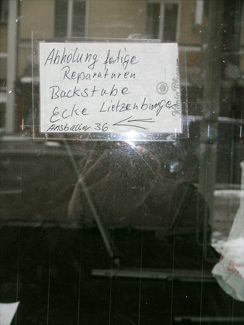 Abholung fertige
Reparaturen
Backstube
Ecke Lietzenburger
Ansbacher 36